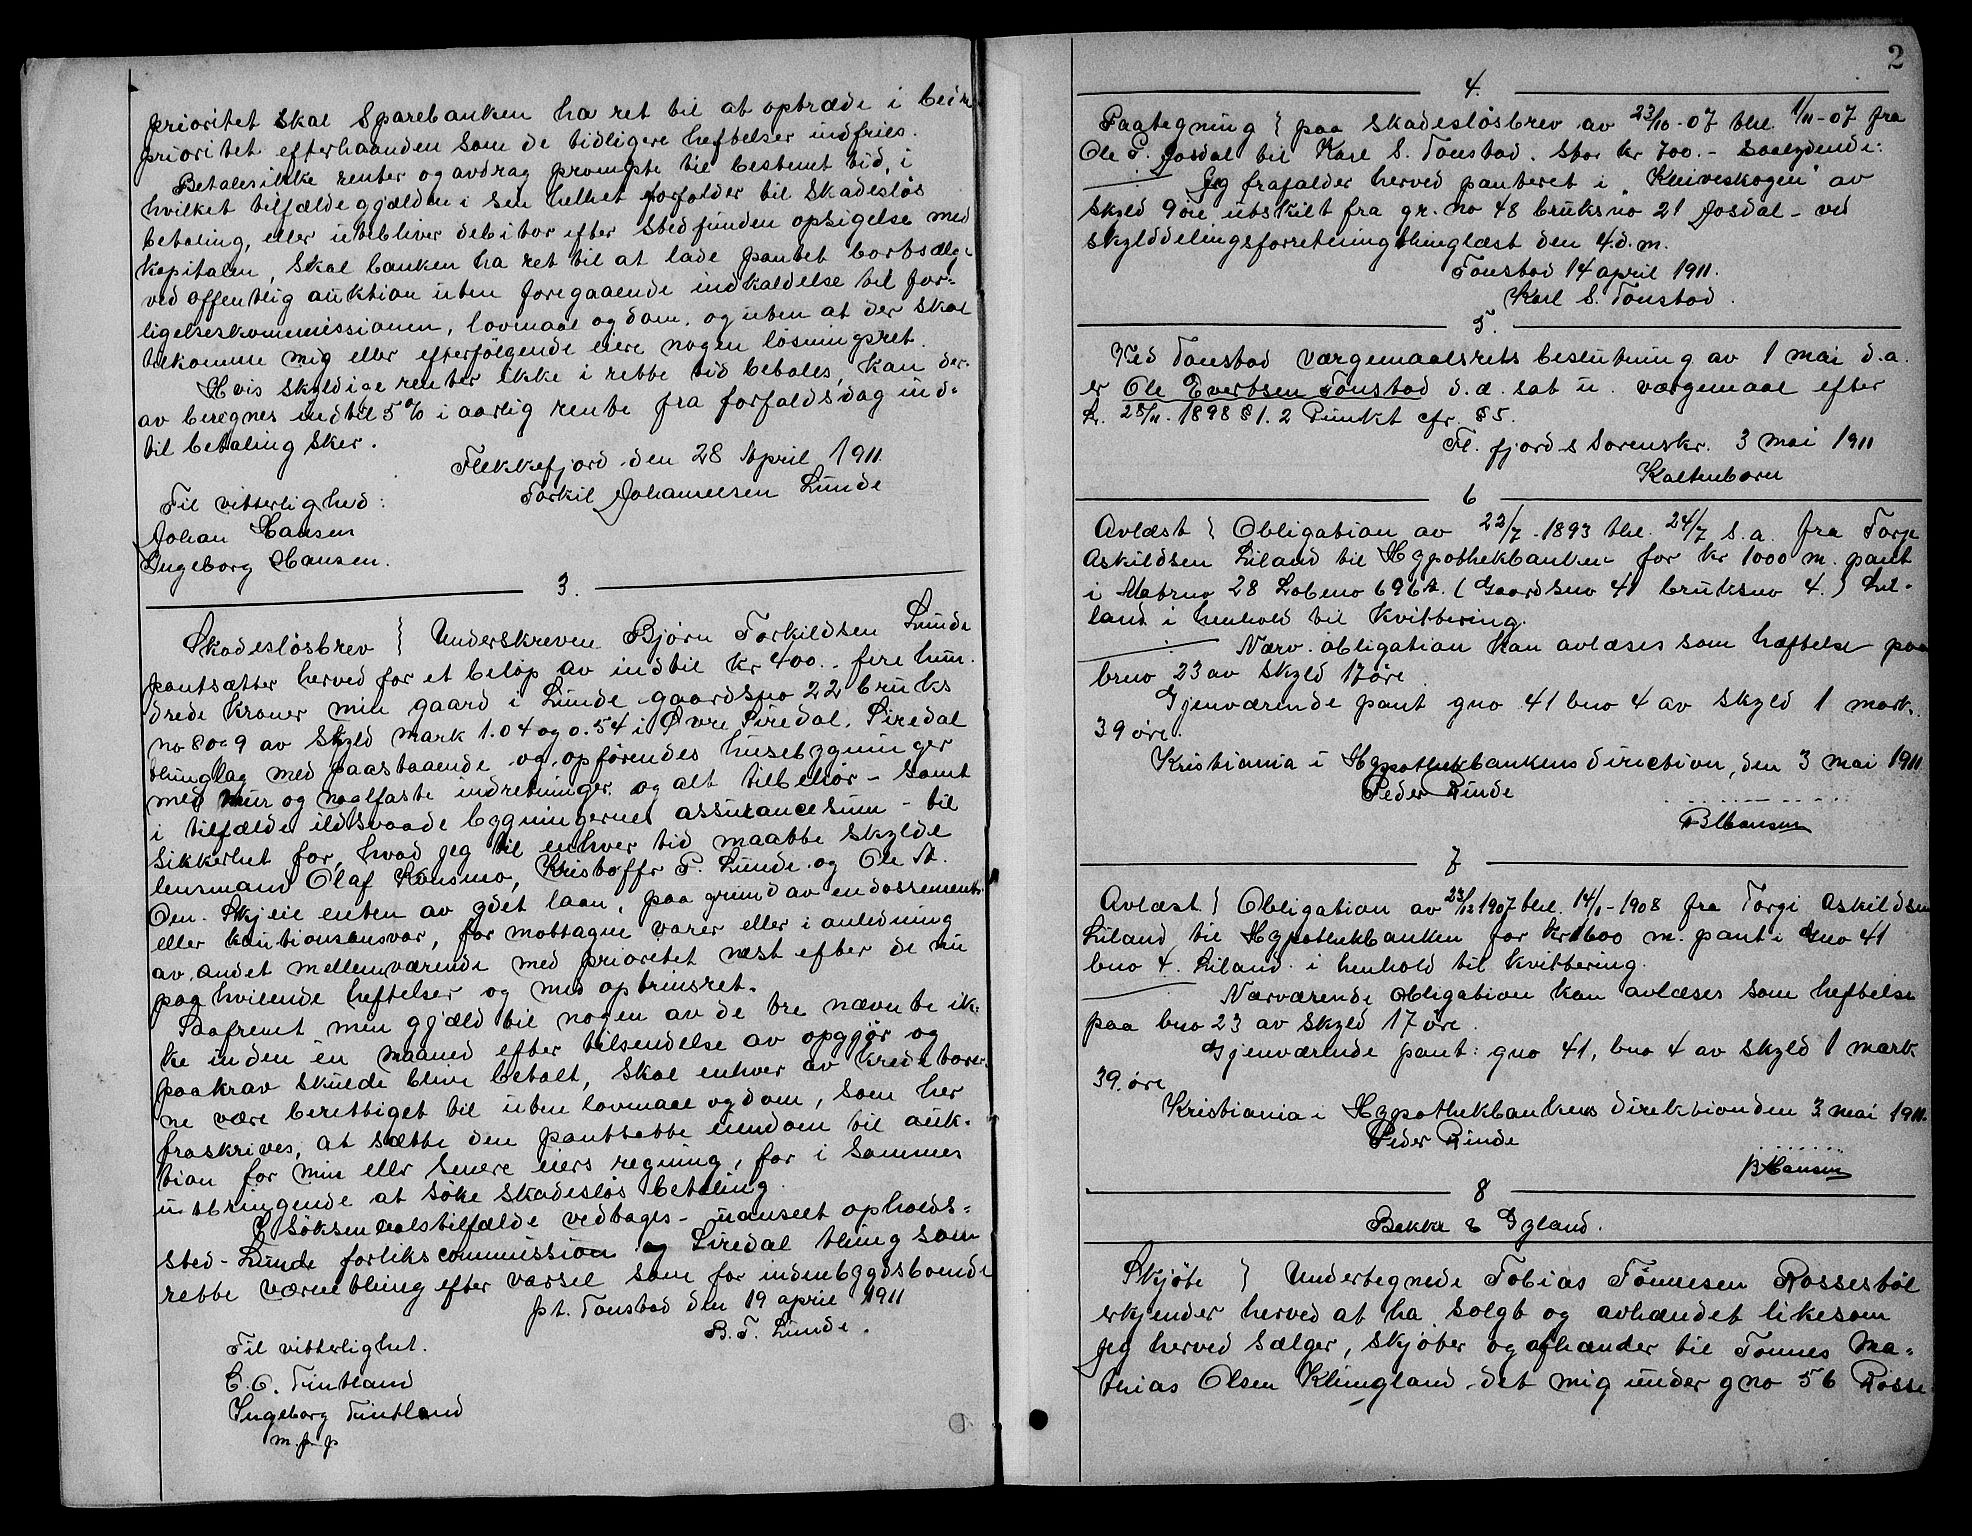 prioritet skal Sparebanken ha ret til at optræde i bedre
prioritet efterhaanden som de tidligere heftelser indfries.
Betales ikke renter og avdrag prompte til bestemt tid, i
hvilket tilfælde gjælden i sin helhet forfalder til skadesløs
betaling, eller utebliver debitor efter stedfunden opsigelse med
kapitalen, skal banken ha ret til at lade pantet bortsælge
ved offentlig auktion uten foregaaende indkaldelse til for-
ligelseskommissionen, lovmaal og dom. og uten at der skal
tilkomme mig eller efterfølgende eiere nogen løsningsret.
Hvis skyldige renter ikke i rette tid betales, kan der-
av beregnes indtil 5% i aarlig rente fra forfaldsdag ind-
til betaling sker.
Flekkefjord den 28 April 1911.
Torkil Johannesen Lunde
Til vitterlighed:
Johan Hansen
Ingeborg Hansen.
3.
Skadesløsbrev } Underskreven Bjørn Torkildsen Lunde
pantsætter herved for et beløp av indtil kr 400.- fire hun-
drede kroner min gaard i Lunde gaardsno 22 bruks
no 8 og 9 av skyld mark 1.04 og 0.54 i Øvre Siredal, Siredal
thinglag med paastaaende og opførendes husebygninger
med mur og naglfaste indretninger og alt tilbehør - samt
i tilfælde ildsvaade bygningernes assurancesum - til
sikkerhet for, hvad jeg til enhver tid maatte skylde
lensmand Olaf Konsmo, Kristoffr P. Lunde og Ole A.
Oen. Skjeie enten av ydet laan, paa grund av endossement
eller kautionsansvar, for mottagne varer eller i anledning
av andet mellemværende med prioritet næst efter de nu
paahvilende heftelser og med optrinsret.
Saafremt min gjæld til nogen av de tre nævnte ik-
ke inden en maaned efter tilsendelse av opgjør og
paakrav skulde blive betalt, skal enhver av kreditorer-
ne være berettiget til uten lovmaal og dom, som her
fraskrives, at sætte den pantsatte eiendom til auk-
tion for min ellr senere eiers regning, for i sammes
utbringende at søke skadesløs betaling.
I søksmaalstilfælde vedtages - uanseet opholds-
sted - Lunde forlikscommission og Siredal thing som
rette værnething efter varsel som for indenbygdsboende
pt. Tonstad den 19 april 1911
B. T. Lunde.
Til vitterlighet.
E. O. Tintland
Ingeborg Tintland
m. p. p
2
4.
Paategning } paa skadesløsbrev av 23/10-07 thl. 1/11-07 fra
Ole P. Josdal til Karl S. Tonstad. Stor kr 700.- saalydende:
Jeg frafalder herved panteret i "Kleiveskogen" av
skyld 9 øre utskilt fra gr. no 48 bruksno 21 Josdal - ved
skylddelingsforretning thinglæst den 4. d. m.
Tonstad 14 april 1911.
Karl S. Tonstad.
5.
Ved Tonstad værgemaalsrets beslutning av 1 mai d.a.
er Ole Evertsen Tonstad d.æ. sat u. værgemaal efter
L. 28/11. 1898 § 1. 2 Punkt cfr. § 5.
Fl. fjords Sorenskr. 3 mai 1911
Kaltenborn
6
Avlæst } Obligation av 22/7-1893 thl. 24/7 s.a. fra Torje
Askildsen Liland til Hypothekbanken for kr 1000 m. pant
i Matrno 28 Løbeno 696A. (Gaardsno 41 bruksno 4.) Lil-
land i henhold til kvittering.
Nærv. obligation kan avlæses som hæftelse paa
bruo 23 av skyld 17 øre.
Gjenværende pant gno 41 bno 4 av skyld 1 mark.
39 øre.
Kristiania i Hypothekbankens direction, den 3 mai 1911.
Peder Rinde
B Hansen
7
Avlæst } Obligation av 23/12 1907 thl. 14/1-1908 fra Torgi Askildsen
Liland til Hypothekbanken for kr 1600 m. pant i Gno 41
bno 4. Liland i henhold til kvittering.
Nærværende obligation kan avlæses som heftelse
paa bno 23 av skyld 17 øre.
Gjenværende pant: gno 41, bno 4 av skyld 1 mark
39. øre
Kristiania i Hypothekbankens direktion den 3 mai 1911.
Peder Rinde
B Hansen
8
Bakke & Gyland.
Skjøte } Undertegnede Tobias Tønnesen Rossestøl
erkjender herved at ha solgt og avhændet likesom
jeg herved sælger, skjøter og afhænder til Tønnes Ma-
thias Olsen Klungland det mig under gno 56 Rosse-